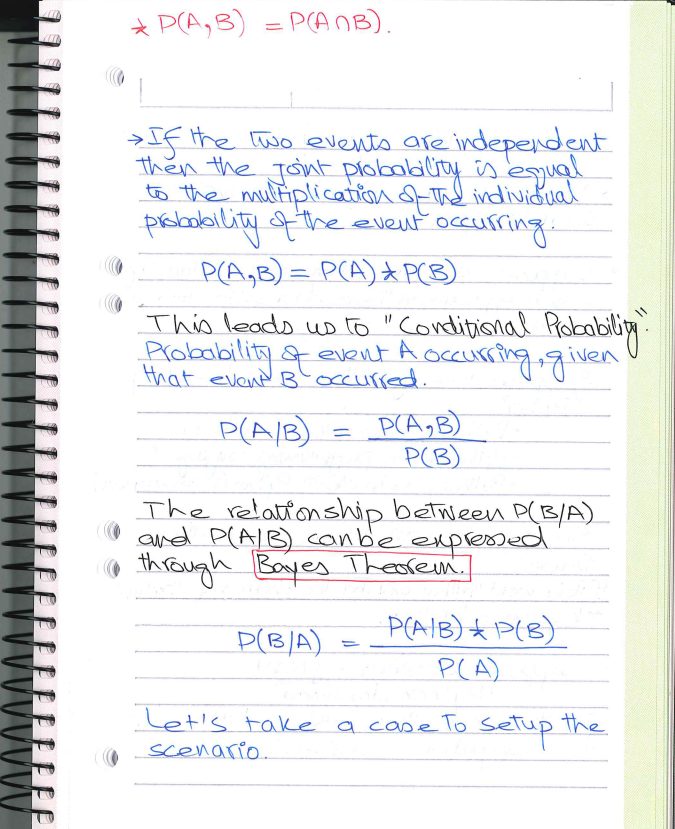 * P(A,B) = P(A∩B).
→ If the two events are independent
then the joint probability is equal
to the multiplication of the individual
probability of the event occurring.
P(A,B) = P(A) * P(B)
This leads us to "Conditional Probability".
Probability of event A occurring, given
that event B occurred.
P(A/B) = P(A,B)
P(B)
The relationship between P(B/A)
and P(A/B) can be expressed
through Bayes Theorem.
P(B/A) = P(A/B) * P(B)
P(A)
Let's take a case to setup the
scenario.